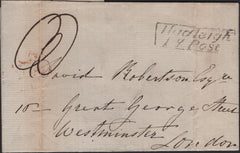 Hadleigh
P Y Post
David Robertson Esqre
10 Great George Street
Westminster
London